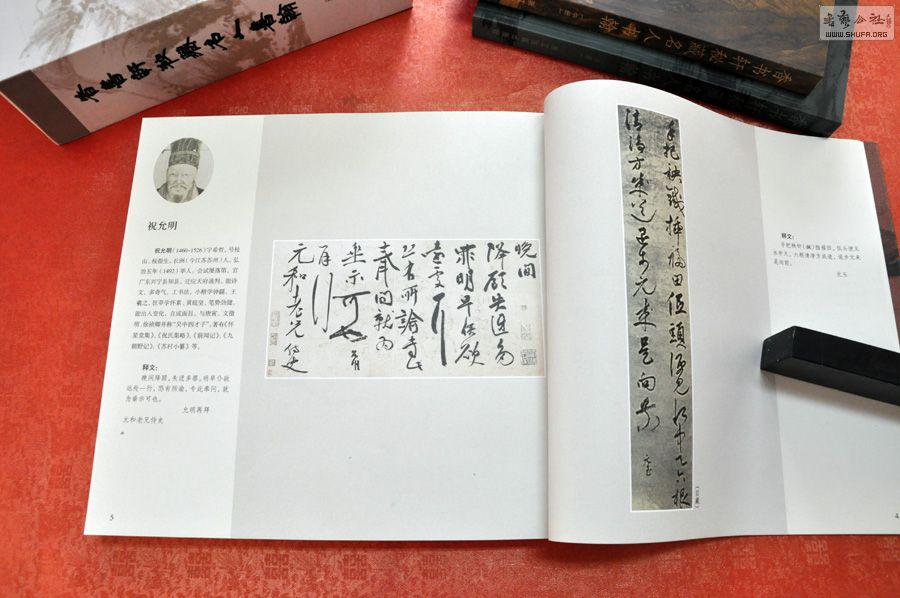 書藝公社
WWW.SHUFA.ORG
香書軒秘藏名人書翰
香书轩秘藏名人书翰
祝允明
祝允明(1460-1526)字希哲,号枝
山,枝指生。长洲(今江苏苏州)人。弘
治五年(1492)举人。会试屡落第。官
广东兴宁县知县。迁应天府通判。能诗
文,多奇气。工书法,小楷学钟繇、王
羲之,狂草学怀素、黄庭坚。笔势劲健,
能出入变化,自成面目。与唐寅、文徵
明、徐祯卿并称“吴中四才子”。著有《怀
星堂集》、《祝氏集略》、《前闻记》、《九
朝野记》、《苏材小纂》等。
释文:
晚间降顾,失迓多罪。明早仆欲
远处一行,恐有所谕,专此奉问,就
为垂示可也。
允明再拜
元和老兄侍史
5
晚间
降顾失迓多
罪明早仆欲
恐有所諭专此
奉问就为
垂示可也
再拜
元和老兄侍史
手把秧针插稻田低头便见水中天六根
清净方成道退步元来是向前
释文:
手把秧针(鍼)插稻田,低头便见
水中天。六根清净方成道,退步元来
是向前。
4